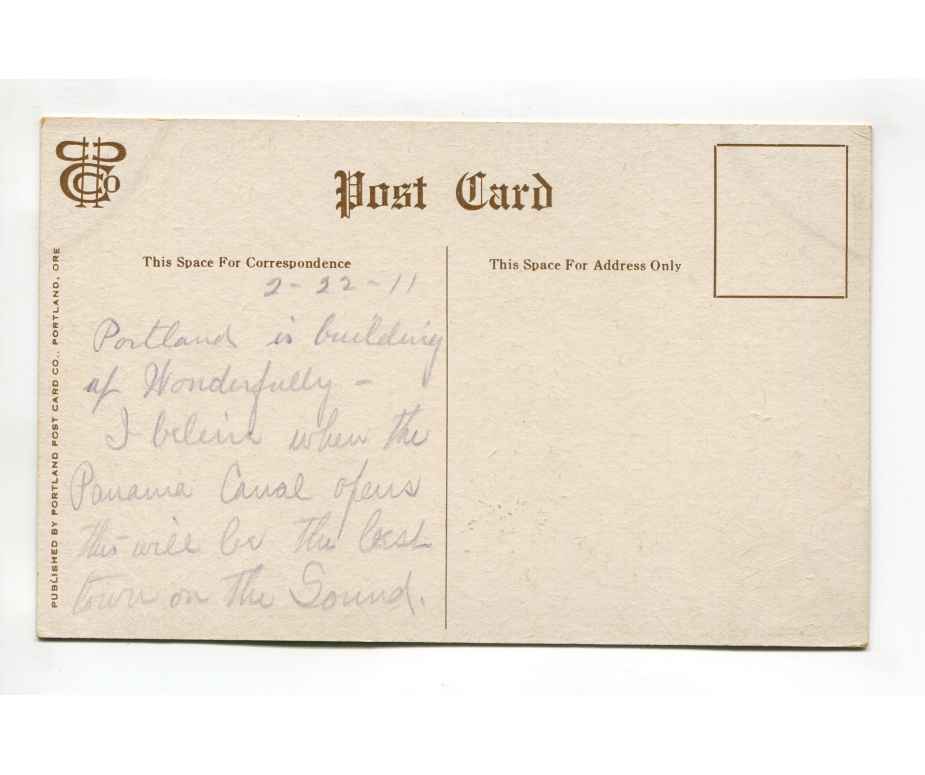 Post Card
This Space For Correspondence
This Space For Address Only
PUBLISHED BY PORTLAND POST CARD CO., PORTLAND, ORE
2-22-11
Portland is building
up Wonderfully -
I believe when the
Panama Canal opens
this will be the best
town on the Sound.